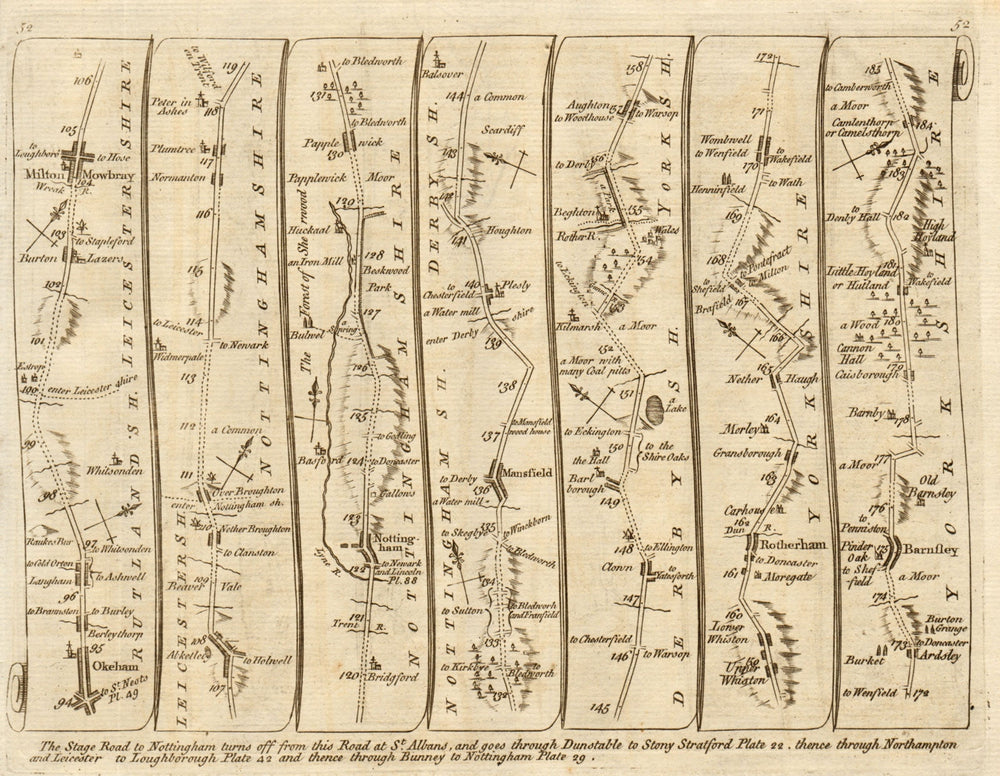 52
52
106
105
to Loughboro
to Hose
Milton Mowbray
104
Wreak R.
103
to Stapleford
Burton Lazers
102
101
Estrop
100
enter Leicestershire
99
Whitsonden
98
97
to Whitsonden
to Cold Orton
Langham
to Ashwell
96
to Braunston
to Burley
Berleythorp
95
Okeham
94
to St. Neots
Pl. 49
RUTLAND'S H. LEICESTERSHIRE
119
to Wilford in Trent
118
Peter in Ashes
Plumtree
117
Normanton
116
115
114
to Leicester
to Newark
Widmerpale
113
112
a Common
111
Over Broughton
enter Nottingham sh.
110
Nether Broughton
to Clanston
109
Beaver Vale
108
Al-kellee
to Holwell
107
LEICESTERSH NOTTINGHAMSHIRE
to Bledworth
131
to Bledworth
Papplewick
130
Papplewick Moor
129
Huckaal
The Forest of Sherwood
an Iron Mill
128
Beskwood Park
127
Bulwel
a Spring
126
125
to Gedling
Basford
124
to Doncaster
Gallows
123
Nottingham
122
to Newark and Lincoln
Pl. 88
Line R.
121
Trent R.
120
Bridgford
NOTTINGHAMSHIRE
Balsover
144
a Common
Scardiff
143
142
Houghton
141
140
to Chesterfield
Plesly
a Water mill
enter Derby shire
139
138
137
to Mansfield wood house
Mansfield
to Derby
136
a Water mill
135
to Skegby
to Winckborn
to Bledworth
134
to Sutton
to Bledworh and Franfield
133
to Kirkbye
to Bledworth
132
NOTTINGHAMSH. DERBYSH.
158
Aughton
157
to Woodhouse
to Warsop
156
to Derby
a Parr
Beghton
155
Rother R.
Wales
154
to Eckington
153
Kilmarsh
a Moor
152
a Moor with many Coal pitts
151
a Lake
to Eckington
150
to the Shire Oaks
the Hall
Bartborough
149
148
to Ellington
Clown
to Yatesforth
147
to Chesterfield
146
to Warsop
145
DERBYSH. YORKSH.
172
171
Wombwell
to Wenfield
170
to Wakefield
Henninfield
to Wath
169
168
to Pontefract
Milton
to Shefield
167
Brafield
166
165
Nether Haugh
164
Morley
Gransborough
163
Carhouse
162
Dun R.
Rotherham
to Doncaster
161
Moregate
160
Lower Whiston
159
Upper Whiston
YORKSHIRE
185
to Camberworth
a Moor
Camlenthorn or Camelsthorp
184
183
to Denby Hall
182
High Hoyland
181
Little Hoyland or Huiland
to Wakefield
a Wood
180
Cannon Hall
179
Caisborough
Barnby
178
177
a Moor
Old Barnsley
176
to Penniston
Pinder Oak
175
Barnsley
to Shefield
a Moor
174
Burton Grange
173
to Doncaster
Burket
Ardsley
to Wenfield
172
YORKSHIRE
The Stage Road to Nottingham turns off from this Road at St. Albans, and goes through Dunstable to Stony Stratford Plate 22. thence through Northampton
and Leicester to Loughborough Plate 42 and thence through Bunney to Nottingham Plate 29.